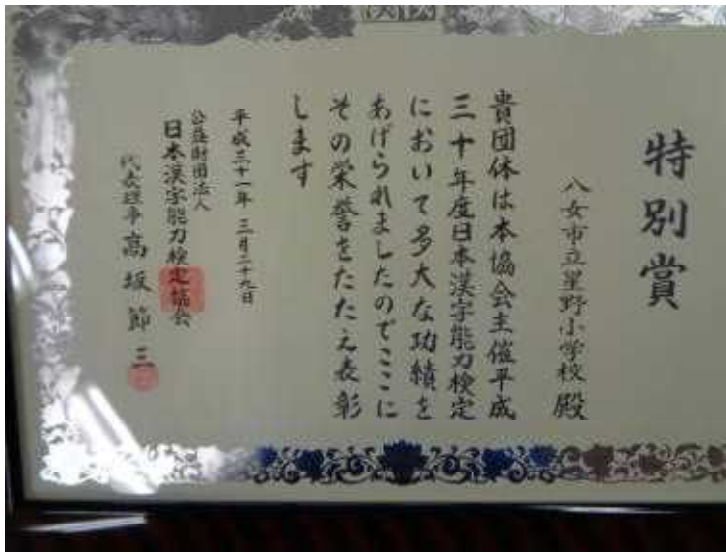 特別賞
八女市立星野小学校 殿
貴団体は本協会主催平成
三十年度日本漢字能力検定
において多大な功績を
あげられましたのでここに
その栄誉をたたえ表彰
します
平成三十一年 三月二十九日
公益財団法人
日本漢字能力検定協会
代表理事 高坂節三